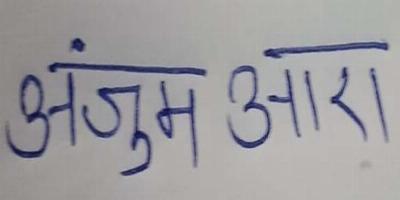 अंजुम आरा